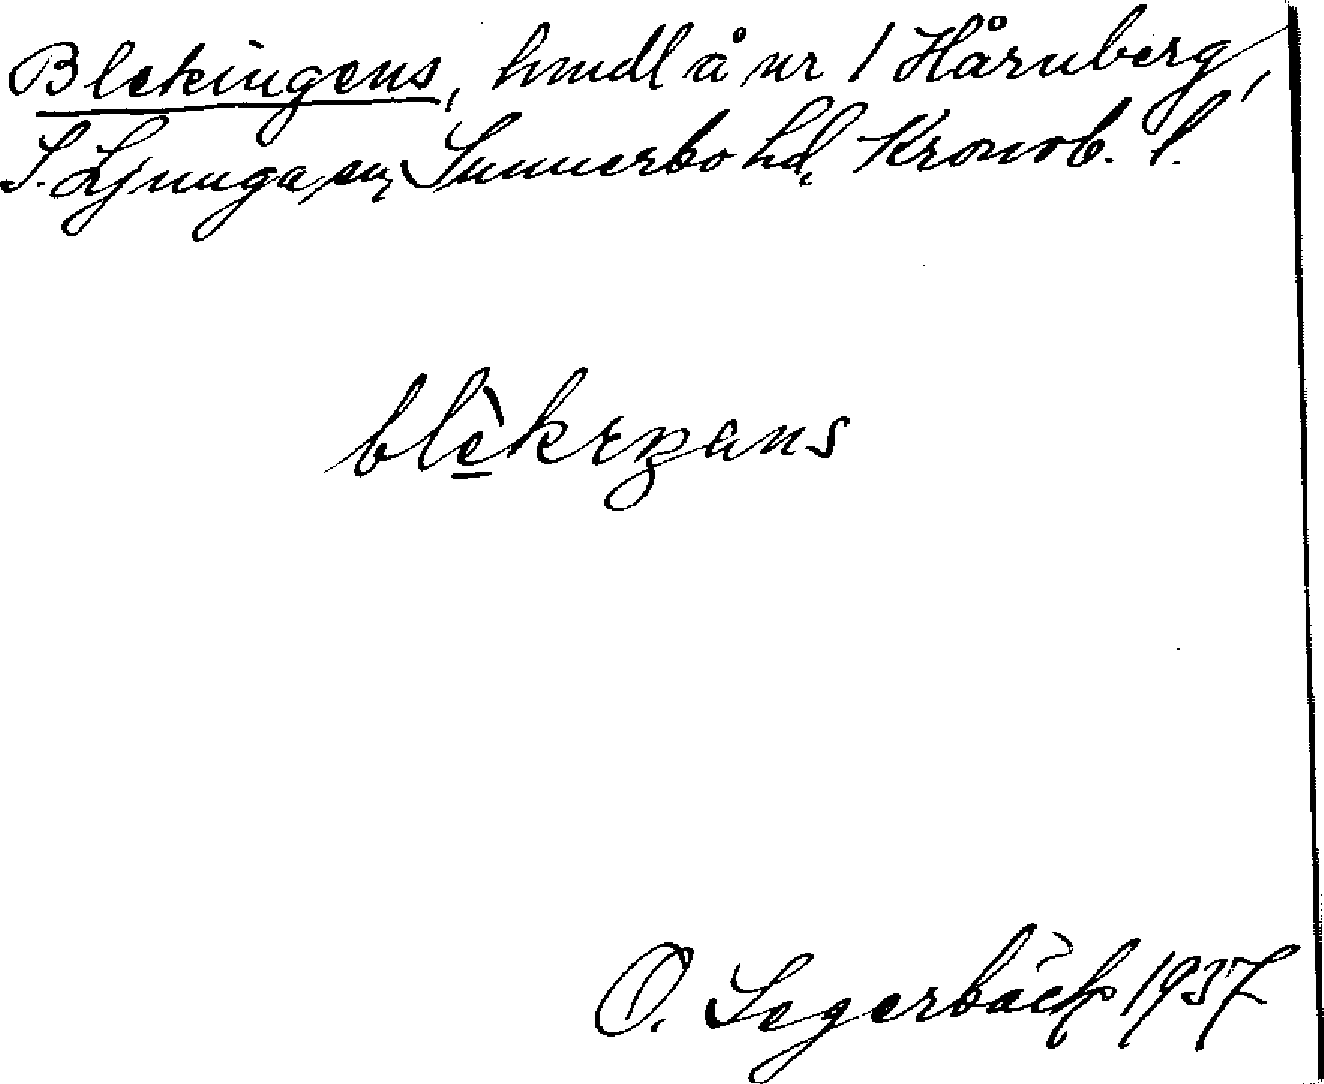 Blekingens, hmdl å nr 1 Hårnberg,
S. Ljunga sn, Sunnerbo hd, Kronob. l.
blèkeŋens
O. Segerbäck 1937